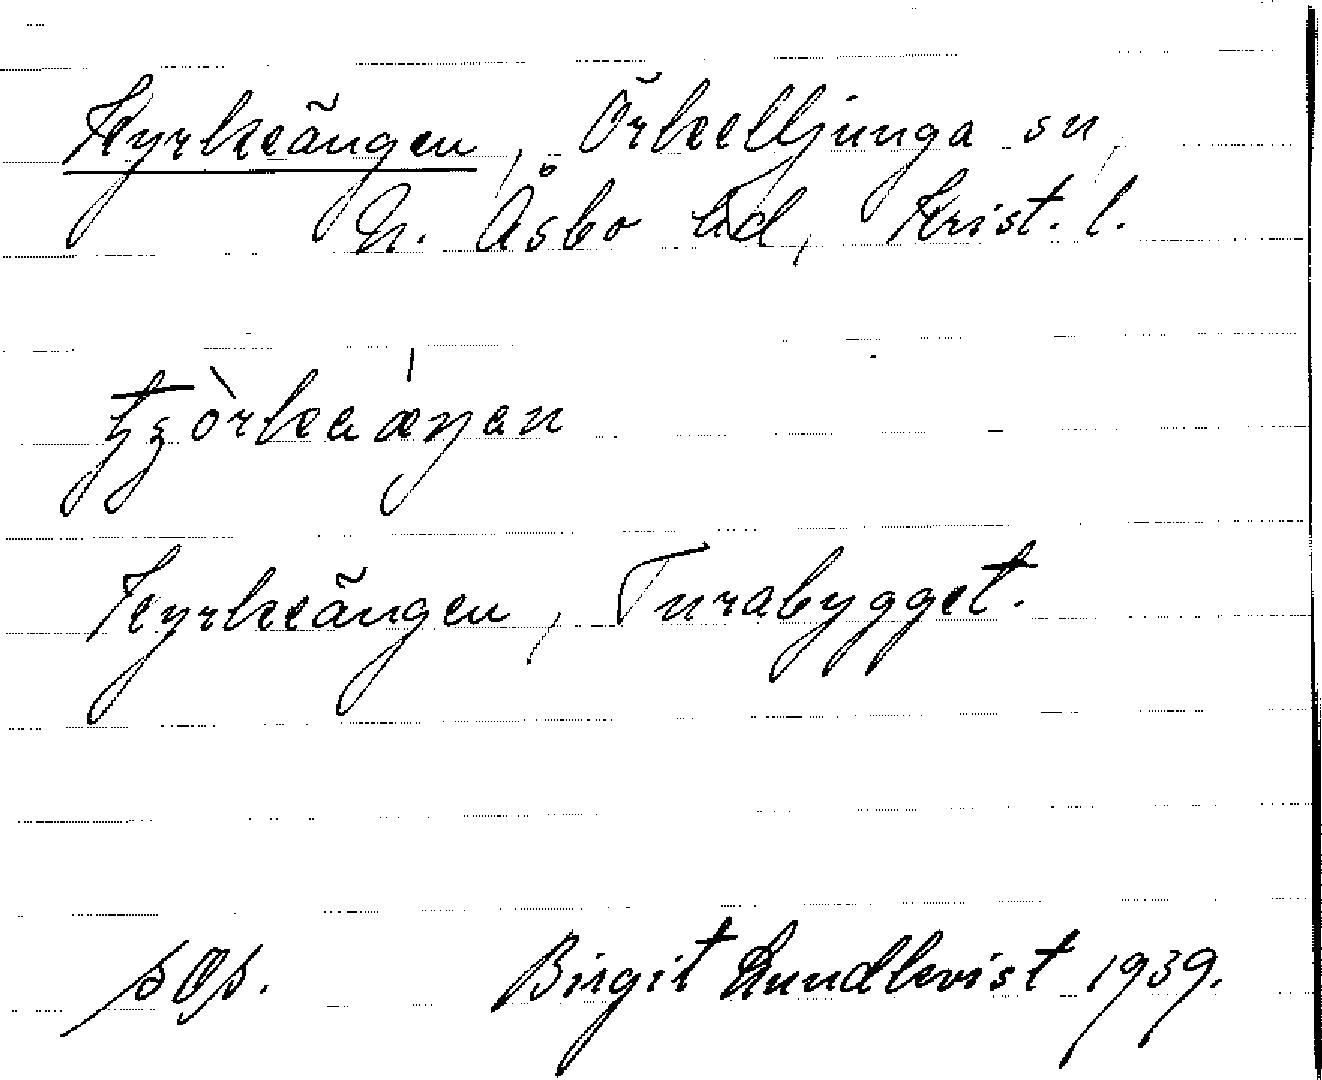 Kyrkeängen, Örkelljunga sn,
N. Åsbo hd, Krist. l.
Kyrkeängen, Turabygget.
Birgit Lundkvist 1939.